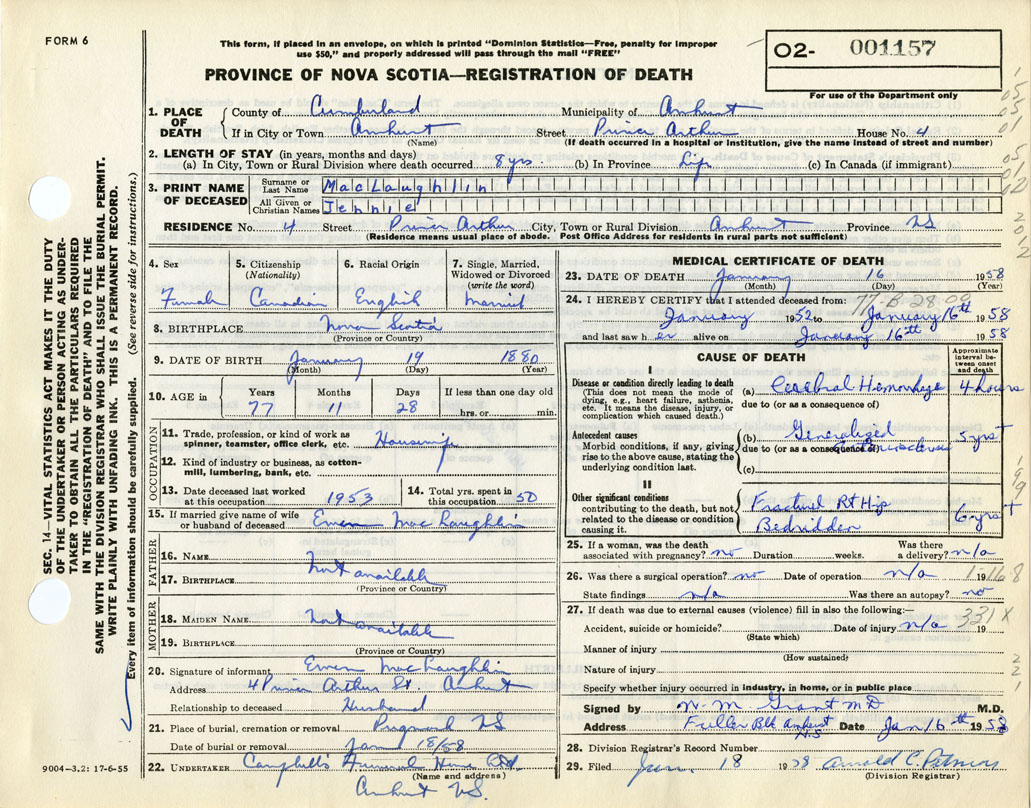 FORM 6
This form, if placed in an envelope, on which is printed "Dominion Statistics—Free, penalty for improper
use $50," and properly addressed will pass through the mail "FREE"
PROVINCE OF NOVA SCOTIA—REGISTRATION OF DEATH
O2- 001157
For use of the Department only
1. PLACE OF DEATH { County of Cumberland Municipality of Amherst
If in City or Town Amherst Street Prince Arthur House No. 4
(Name) (If death occurred in a hospital or institution, give the name instead of street and number)
2. LENGTH OF STAY (in years, months and days)
(a) In City, Town or Rural Division where death occurred 8 yrs. (b) In Province Life (c) In Canada (if immigrant)
3. PRINT NAME OF DECEASED { Surname or Last Name MacLaughlin
All Given or Christian Names Jennie
RESIDENCE No. 4 Street Prince Arthur City, Town or Rural Division Amherst Province NS
(Residence means usual place of abode. Post Office Address for residents in rural parts not sufficient)
4. Sex 5. Citizenship (Nationality) 6. Racial Origin 7. Single, Married, Widowed or Divorced (write the word)
Female Canadian English Married
8. BIRTHPLACE Nova Scotia
(Province or Country)
9. DATE OF BIRTH January 19 1880
(Month) (Day) (Year)
10. AGE in Years Months Days If less than one day old
77 11 28 hrs. or min.
OCCUPATION
11. Trade, profession, or kind of work as spinner, teamster, office clerk, etc. Housewife
12. Kind of industry or business, as cotton-mill, lumbering, bank, etc.
13. Date deceased last worked at this occupation 1953 14. Total yrs. spent in this occupation 50
15. If married give name of wife or husband of deceased Ewen MacLaughlin
FATHER
16. NAME
Not available
17. BIRTHPLACE
(Province or Country)
MOTHER
18. MAIDEN NAME
Not available
19. BIRTHPLACE
(Province or Country)
20. Signature of informant Ewen MacLaughlin
Address 4 Prince Arthur St. Amherst
Relationship to deceased Husband
21. Place of burial, cremation or removal Pugwash NS
Date of burial or removal Jan 18/58
22. UNDERTAKER Campbell's Funeral Home Ltd.
(Name and address)
Amherst NS.
9004—3.2: 17-6-55
SEC. 14—VITAL STATISTICS ACT MAKES IT THE DUTY
OF THE UNDERTAKER OR PERSON ACTING AS UNDER-
TAKER TO OBTAIN ALL THE PARTICULARS REQUIRED
IN THE "REGISTRATION OF DEATH" AND TO FILE THE
SAME WITH THE DIVISION REGISTRAR WHO SHALL ISSUE THE BURIAL PERMIT.
WRITE PLAINLY WITH UNFADING INK. THIS IS A PERMANENT RECORD.
Every item of information should be carefully supplied. (See reverse side for instructions.)
MEDICAL CERTIFICATE OF DEATH
23. DATE OF DEATH January 16 1958
(Month) (Day) (Year)
24. I HEREBY CERTIFY that I attended deceased from: 77-B-28.09
January 1952 to January 16th 1958
and last saw her alive on January 16th 1958
CAUSE OF DEATH
Approximate interval between onset and death
I
Disease or condition directly leading to death
(This does not mean the mode of dying, e.g., heart failure, asthenia, etc. It means the disease, injury, or complication which caused death.)
(a) Cerebral Hemorrhage 4 hours
due to (or as a consequence of)
Antecedent causes
Morbid conditions, if any, giving rise to the above cause, stating the underlying condition last.
(b) Generalized 5 yrs+
due to (or as a consequence of)
(c)
II
Other significant conditions
contributing to the death, but not related to the disease or condition causing it.
Fractured Rt Hip
Bedridden 6 yrs +
25. If a woman, was the death associated with pregnancy? no Duration weeks. Was there a delivery? n/a
26. Was there a surgical operation? no Date of operation n/a 19
State findings n/a Was there an autopsy? no
27. If death was due to external causes (violence) fill in also the following:— 331X
Accident, suicide or homicide? Date of injury n/a 19
(State which)
Manner of injury
(How sustained)
Nature of injury
Specify whether injury occurred in industry, in home, or in public place
Signed by N. M. Grant MD M.D.
Address Fuller Blk Amherst N.S. Date Jan 16th 1958
28. Division Registrar's Record Number
29. Filed Jan. 18 1958 Arnold C.
(Division Registrar)